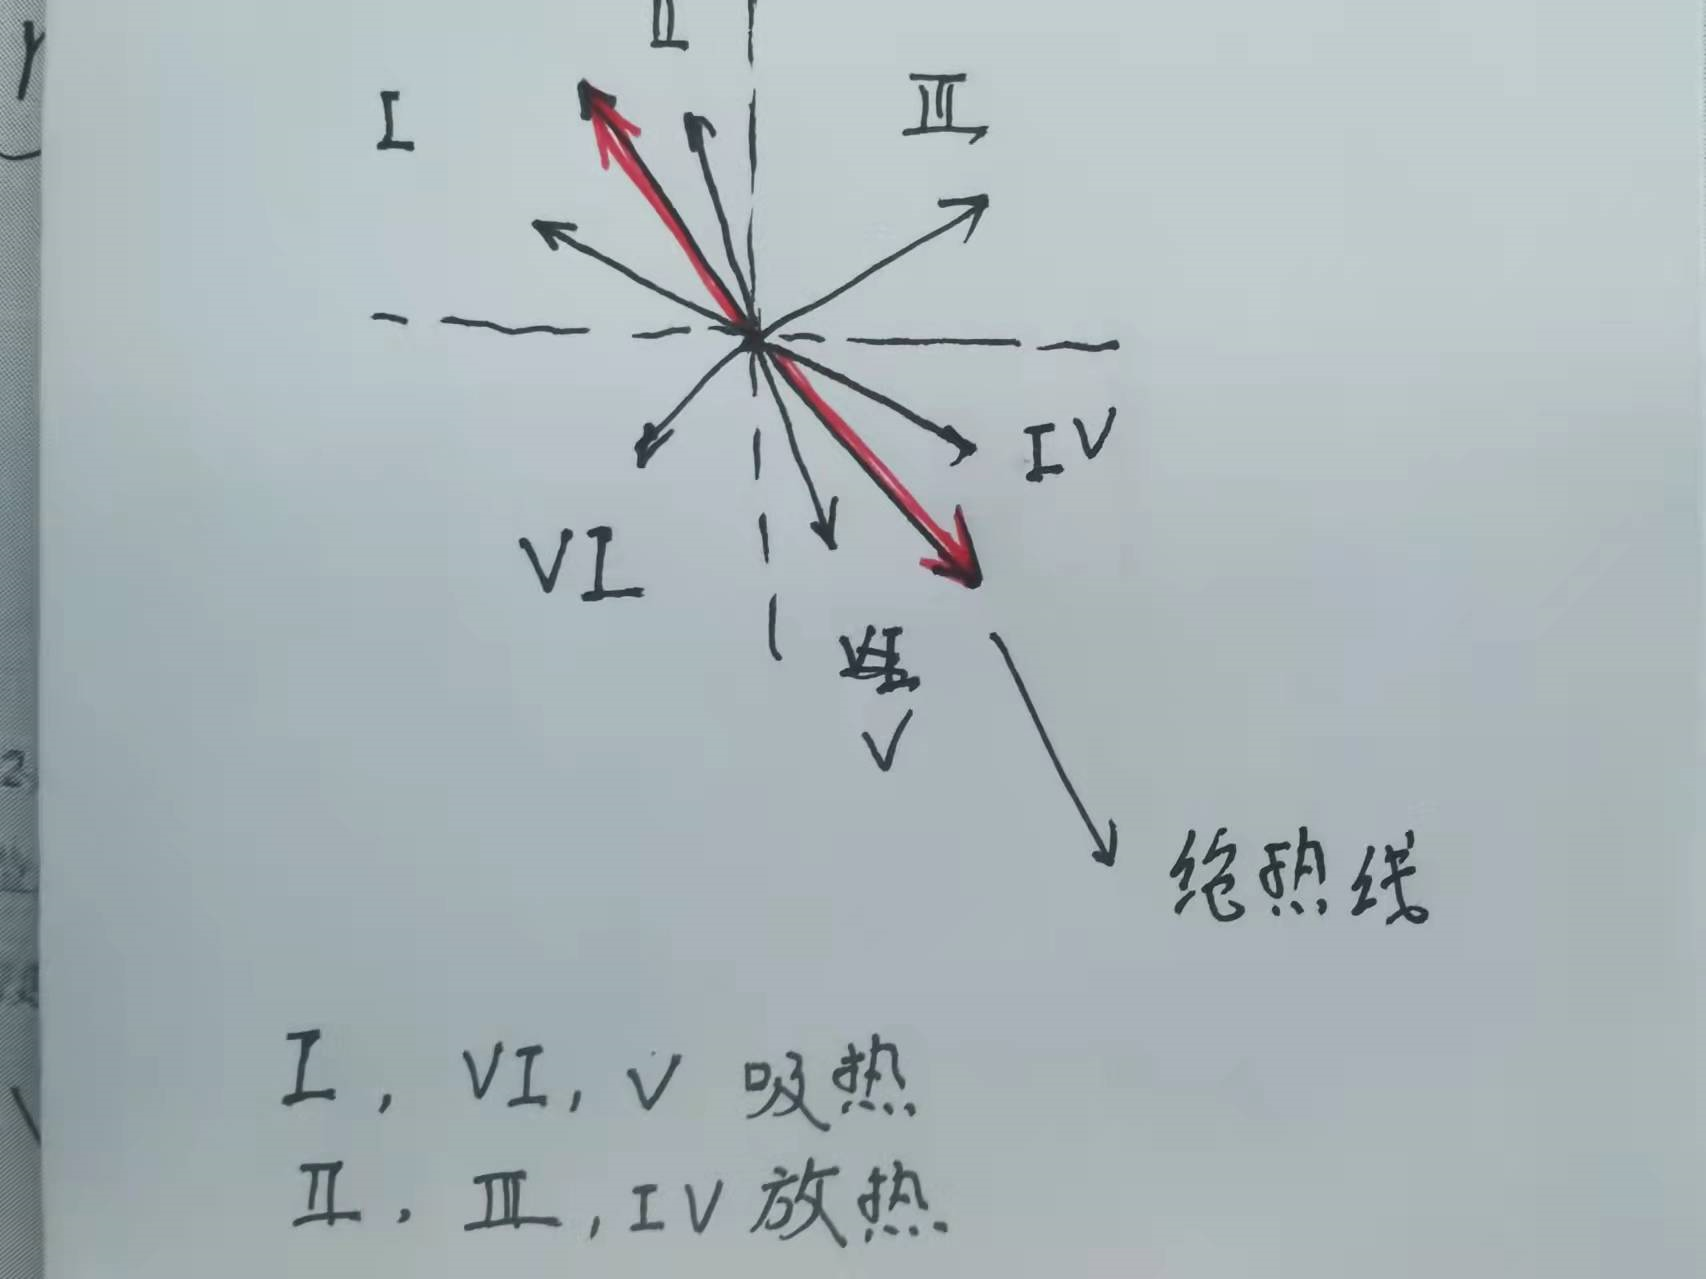 II
I
III
IV
VI
V
绝热线
I, VI, V 吸热
II, III, IV 放热